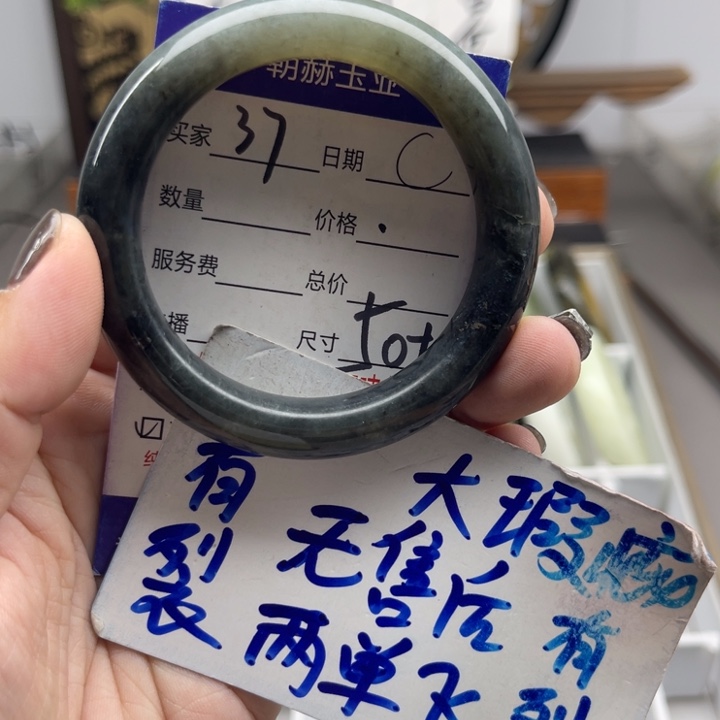 朝赫玉业
买家 37 日期
数量 价格
服务费 总价
播 尺寸 50+
有裂
无售后
两单
大瑕疵
有